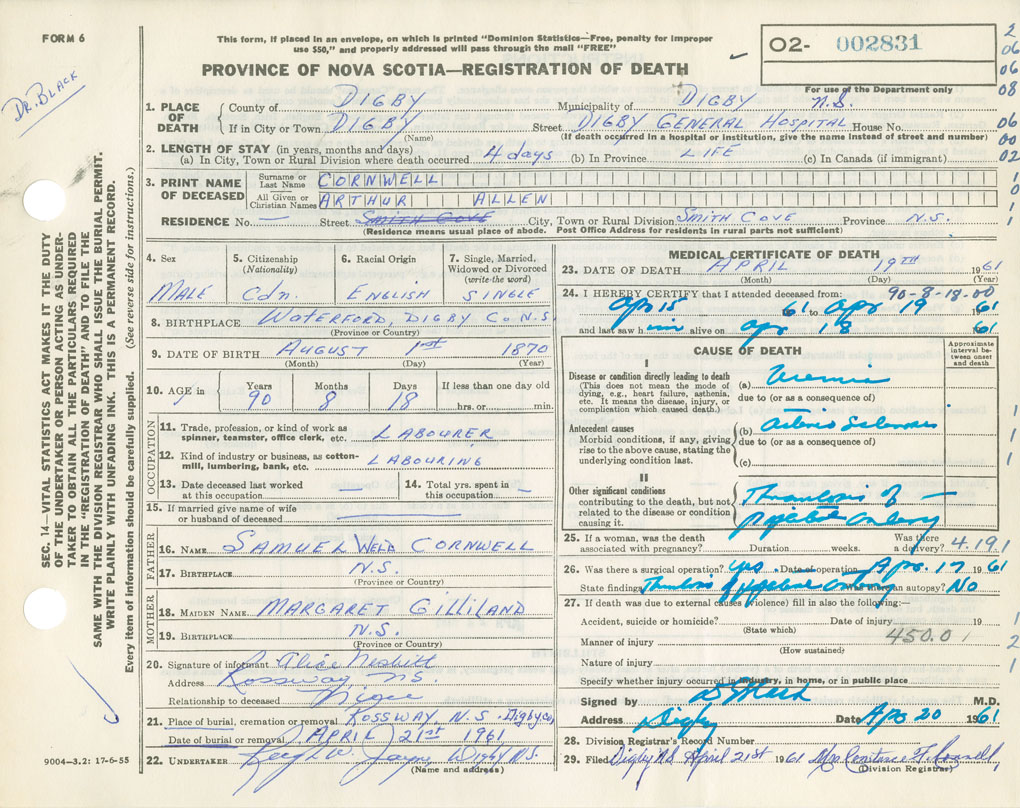 FORM 6
This form, if placed in an envelope, on which is printed "Dominion Statistics—Free, penalty for improper
use $50," and properly addressed will pass through the mail "FREE"
PROVINCE OF NOVA SCOTIA—REGISTRATION OF DEATH
O2- 002831
For use of the Department only
DR. BLACK
2
06
06
08
06
00
02
SEC. 14—VITAL STATISTICS ACT MAKES IT THE DUTY
OF THE UNDERTAKER OR PERSON ACTING AS UNDER-
TAKER TO OBTAIN ALL THE PARTICULARS REQUIRED
IN THE "REGISTRATION OF DEATH" AND TO FILE THE
SAME WITH THE DIVISION REGISTRAR WHO SHALL ISSUE THE BURIAL PERMIT.
WRITE PLAINLY WITH UNFADING INK. THIS IS A PERMANENT RECORD.
Every item of information should be carefully supplied. (See reverse side for instructions.)
1. PLACE OF DEATH
County of DIGBY Municipality of DIGBY N.S.
If in City or Town DIGBY Street DIGBY GENERAL HOSPITAL House No.
(Name) (If death occurred in a hospital or institution, give the name instead of street and number)
2. LENGTH OF STAY (in years, months and days)
(a) In City, Town or Rural Division where death occurred 4 days (b) In Province LIFE (c) In Canada (if immigrant)
3. PRINT NAME OF DECEASED
Surname or Last Name CORNWELL
All Given or Christian Names ARTHUR ALLEN
RESIDENCE No. — Street SMITH COVE City, Town or Rural Division SMITH COVE Province N.S.
(Residence means usual place of abode. Post Office Address for residents in rural parts not sufficient)
4. Sex MALE
5. Citizenship (Nationality) Cdn.
6. Racial Origin ENGLISH
7. Single, Married, Widowed or Divorced (write the word) SINGLE
8. BIRTHPLACE WATERFORD, DIGBY CO. N.S.
(Province or Country)
9. DATE OF BIRTH AUGUST 1st 1870
(Month) (Day) (Year)
10. AGE in Years 90 Months 8 Days 18 If less than one day old hrs. or min.
OCCUPATION
11. Trade, profession, or kind of work as spinner, teamster, office clerk, etc. LABOURER
12. Kind of industry or business, as cotton-mill, lumbering, bank, etc. LABOURING
13. Date deceased last worked at this occupation —
14. Total yrs. spent in this occupation —
15. If married give name of wife or husband of deceased —
FATHER
16. NAME SAMUEL WELD CORNWELL
17. BIRTHPLACE N.S.
(Province or Country)
MOTHER
18. MAIDEN NAME MARGARET GILLILAND
19. BIRTHPLACE N.S.
(Province or Country)
20. Signature of informant Alice Nesbitt
Address Rossway N.S.
Relationship to deceased Niece
21. Place of burial, cremation or removal ROSSWAY, N.S. Digby Co.
Date of burial or removal APRIL 21st 1961
22. UNDERTAKER Jayne Digby N.S.
(Name and address)
9004—3.2: 17-6-55
MEDICAL CERTIFICATE OF DEATH
23. DATE OF DEATH APRIL 19TH 1961
(Month) (Day) (Year)
90-8-18.00
24. I HEREBY CERTIFY that I attended deceased from:
Apr 15 61 to Apr 19 1961
and last saw him alive on Apr 18 1961
CAUSE OF DEATH
Approximate interval between onset and death
I
Disease or condition directly leading to death
(This does not mean the mode of dying, e.g., heart failure, asthenia, etc. It means the disease, injury, or complication which caused death.)
(a) Uremia
due to (or as a consequence of)
Antecedent causes
Morbid conditions, if any, giving rise to the above cause, stating the underlying condition last.
(b) Arterio Sclerosis
due to (or as a consequence of)
(c)
II
Other significant conditions
contributing to the death, but not related to the disease or condition causing it.
Thrombosis of —
Artery
25. If a woman, was the death associated with pregnancy? Duration weeks. Was there a delivery? 4.191
26. Was there a surgical operation? yes. Date of operation Apr. 17 1961
State findings Thrombosis of Artery Was there an autopsy? No
27. If death was due to external causes (violence) fill in also the following:—
Accident, suicide or homicide? Date of injury 19
(State which) 450.0
Manner of injury
(How sustained)
Nature of injury
Specify whether injury occurred in industry, in home, or in public place
Signed by M.D.
Address Digby Date Apr 20 1961
28. Division Registrar's Record Number
29. Filed Digby N.S. April 21st 1961 Mrs.
(Division Registrar)